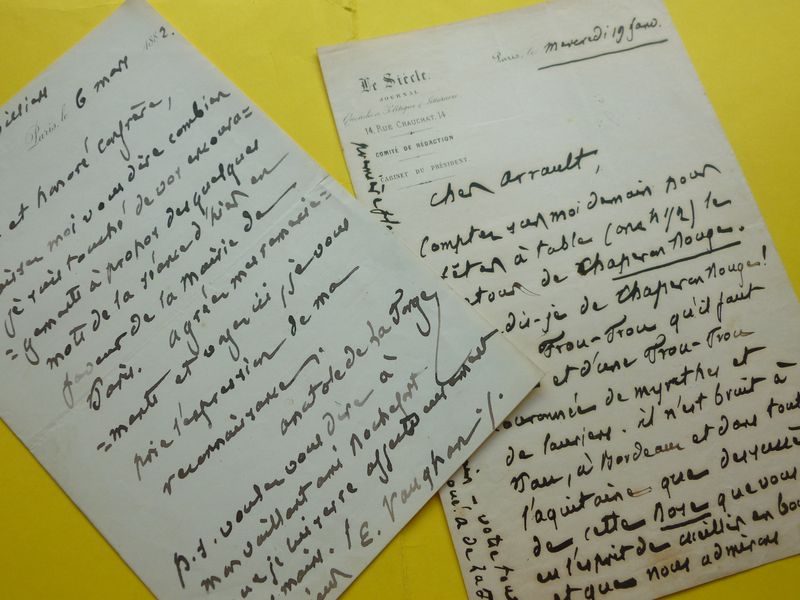 Paris, le 6 mars 1882.
et honoré confrère,
moi vous dire combien
je suis touché de vos encoura=
=gements à propos des quelques
mots de la séance d'hier en
faveur de la Mairie de
Paris. agréez mes remercie=
=ments et voyez ici, je vous
prie l'expression de ma
reconnaissance.
anatole de la Forge
p.s. voulez vous dire à
mon vaillant ami Rochefort
que je lui serre affectueusement
mains.
E. Vaughan
Le Siècle.
JOURNAL
14, RUE CHAUCHAT, 14
COMITÉ DE RÉDACTION
CABINET DU PRÉSIDENT
Paris, le mercredi 19 janv.
Cher arrault,
Comptez sur moi demain pour
à table (onze h 1/2) le
de Chaperon Rouge.
dis-je de Chaperon Rouge!
Frou-Frou qu'il faut
et d'une Frou-Frou
couronnée de myrthes et
de lauriers. il n'est bruit à
Pau, à Bordeaux et dans toute
l'aquitaine que
de cette Rose que vous
eu l'esprit de cueillir en
et que nous admirons